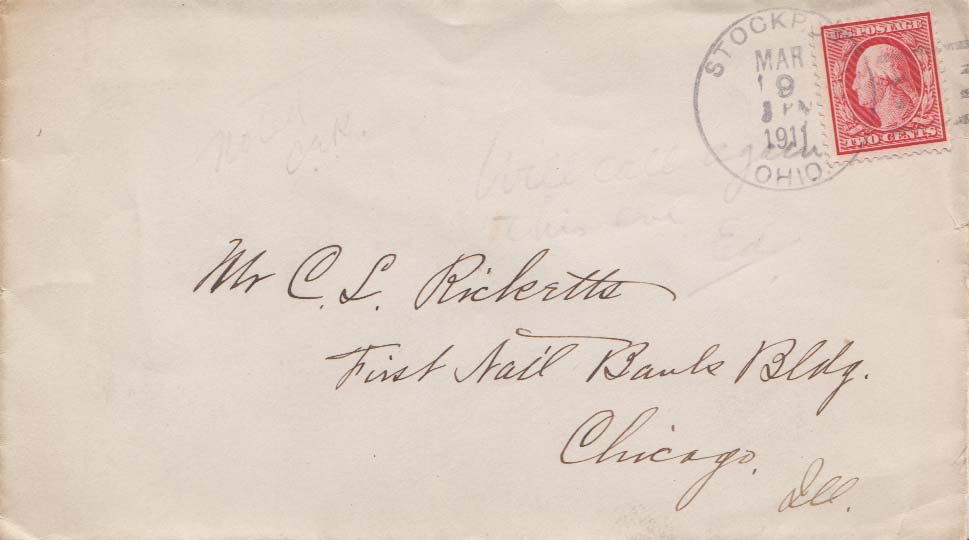 STOCKPORT
MAR
9
PM
1911
OHIO.
U.S. POSTAGE
TWO CENTS
Will call again
this eve
Ed.
Mr C. L. Ricketts
First Nat'l Bank Bldg.
Chicago.
Ill.